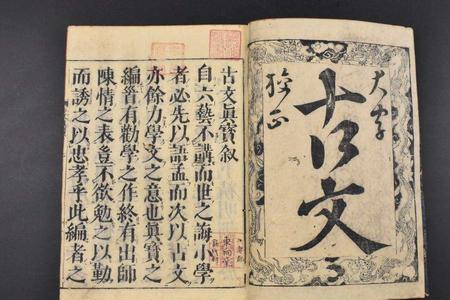 大字
古文
挍正
古文眞寶叙
自六藝不講而世之誨小學
者必先以語孟而次以古文
亦餘力學文之意也眞寶之
編首有勸學之作終有出師
陳情之表豈不欲勉之以勤
而誘之以忠孝乎此編者之